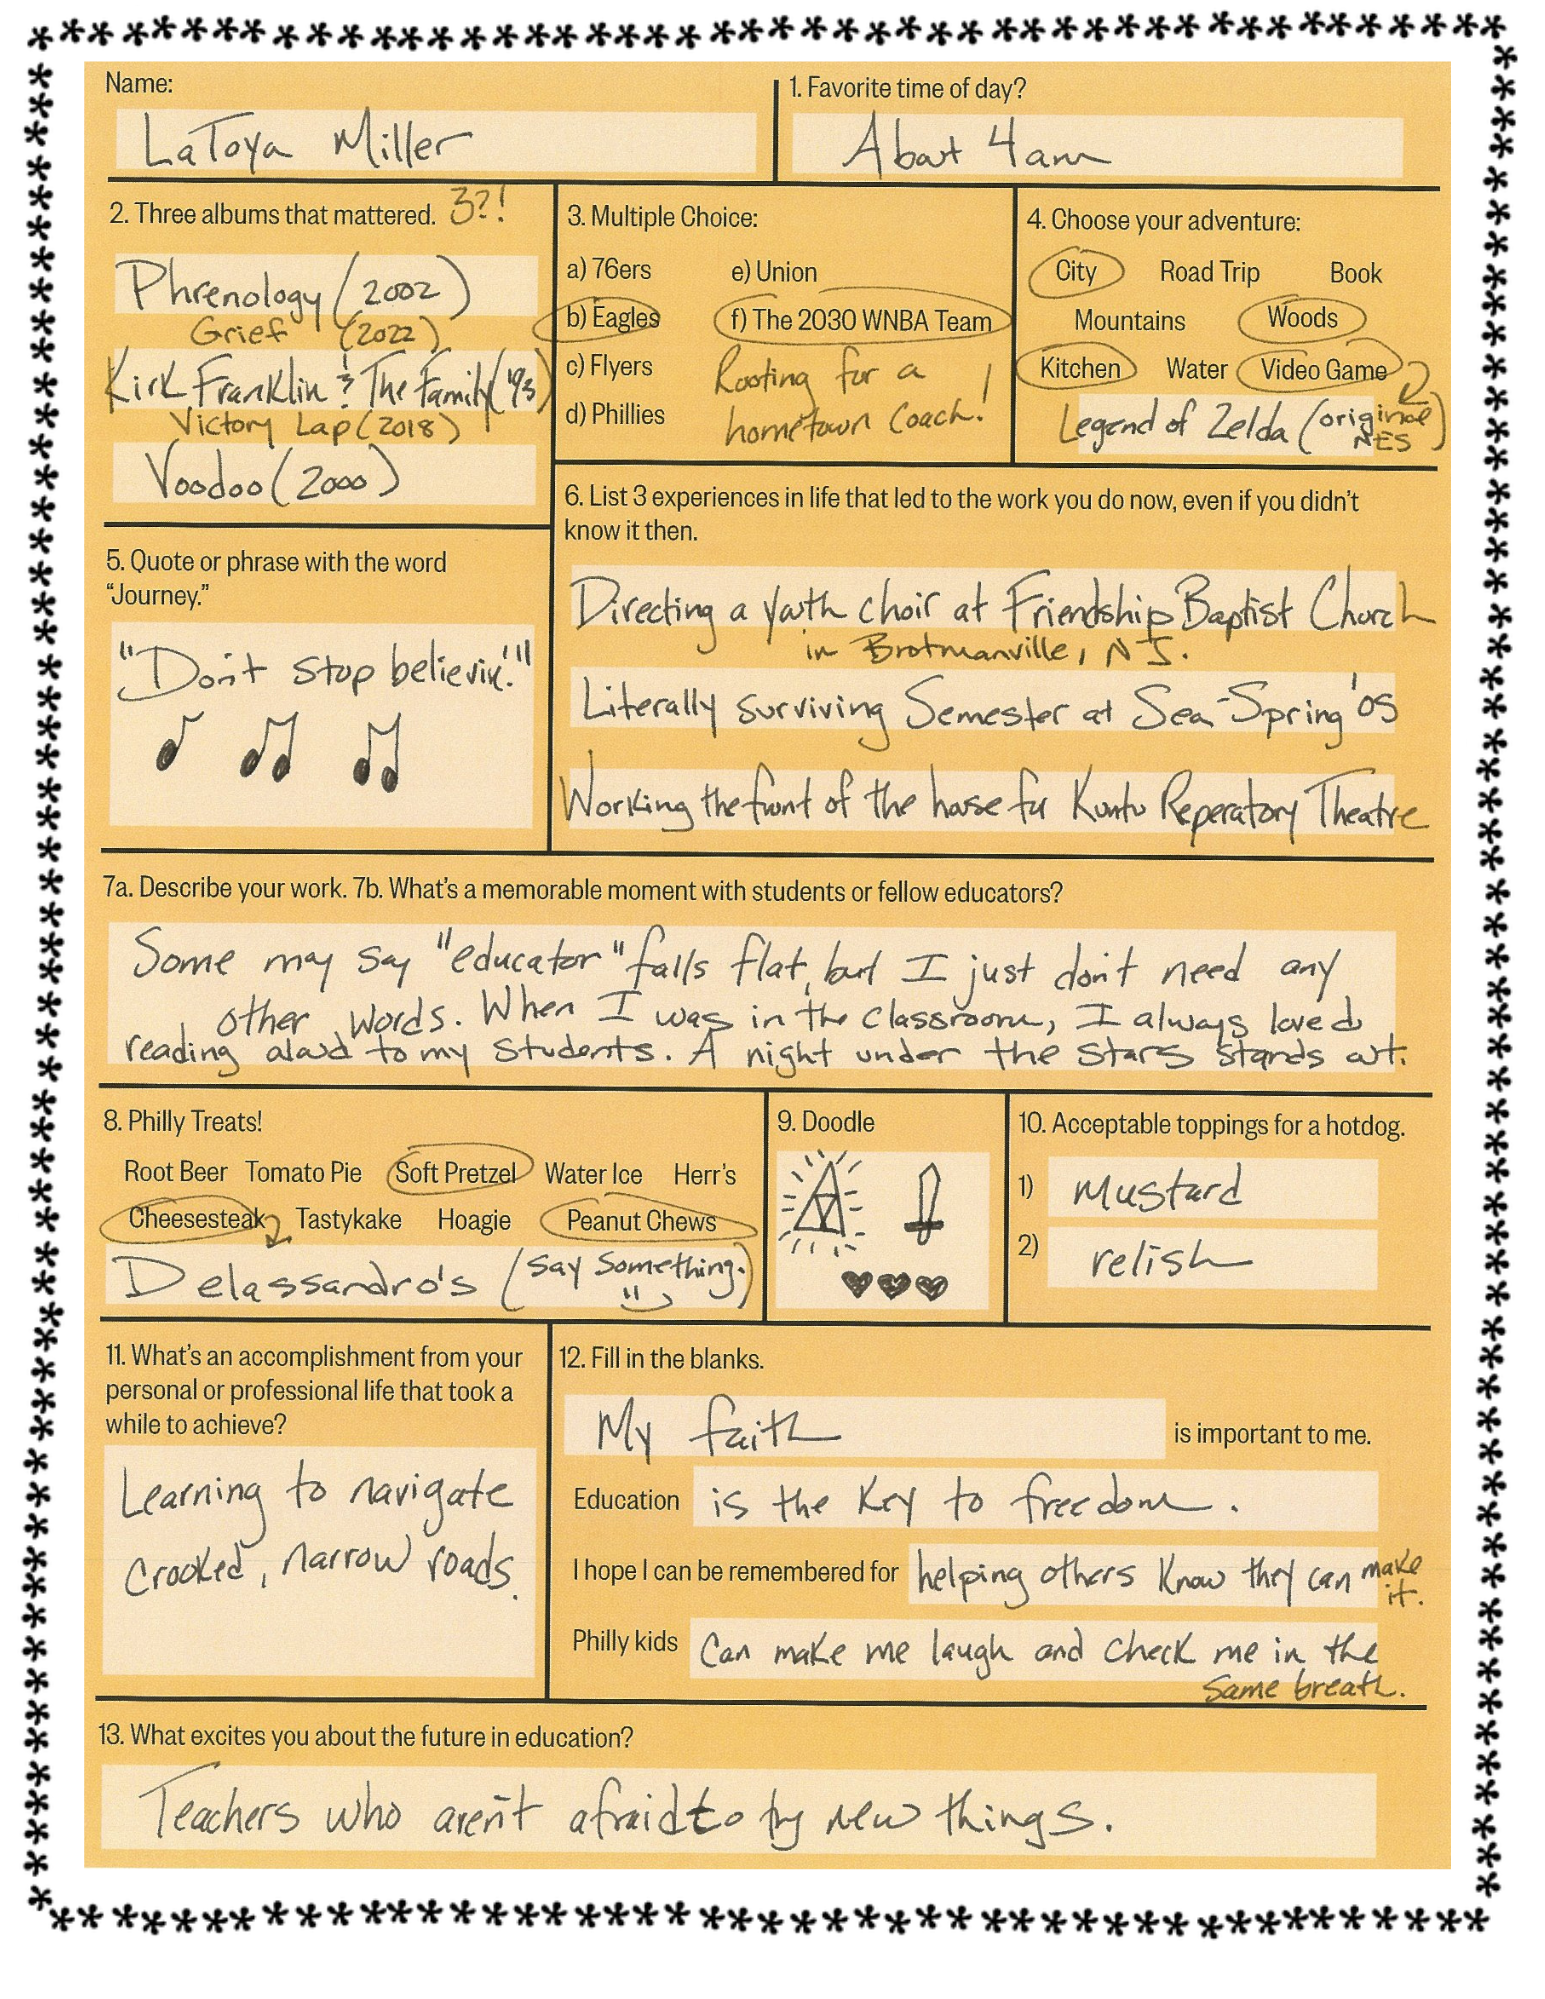 Name:
LaToya Miller
1. Favorite time of day?
About 4am
2. Three albums that mattered. 3?!
Phrenology (2002)
Grief (2022)
Kirk Franklin & The Family ('93)
Victory Lap (2018)
Voodoo (2000)
3. Multiple Choice:
a) 76ers
b) Eagles
c) Flyers
d) Phillies
e) Union
f) The 2030 WNBA Team
Rooting for a
hometown Coach!
4. Choose your adventure:
City Road Trip Book
Mountains Woods
Kitchen Water Video Game
Legend of Zelda (original
NES)
5. Quote or phrase with the word
“Journey.”
"Don't stop believin'."
6. List 3 experiences in life that led to the work you do now, even if you didn’t
know it then.
Directing a youth choir at Friendship Baptist Church
in Brotmanville, NJ.
Literally surviving Semester at Sea-Spring '05
Working the front of the house for Kuntu Reperatory Theatre
7a. Describe your work. 7b. What’s a memorable moment with students or fellow educators?
Some may say "educator" falls flat, but I just don't need any
other words. When I was in the classroom, I always loved
reading aloud to my students. A night under the stars stands out.
8. Philly Treats!
Root Beer Tomato Pie Soft Pretzel Water Ice Herr's
Cheesesteak Tastykake Hoagie Peanut Chews
Delassandro's (say something.)
9. Doodle
10. Acceptable toppings for a hotdog.
1) mustard
2) relish
11. What’s an accomplishment from your
personal or professional life that took a
while to achieve?
Learning to navigate
crooked, narrow roads.
12. Fill in the blanks.
My faith is important to me.
Education is the key to freedom.
I hope I can be remembered for helping others know they can make
it.
Philly kids can make me laugh and check me in the
same breath.
13. What excites you about the future in education?
Teachers who aren't afraid to try new things.